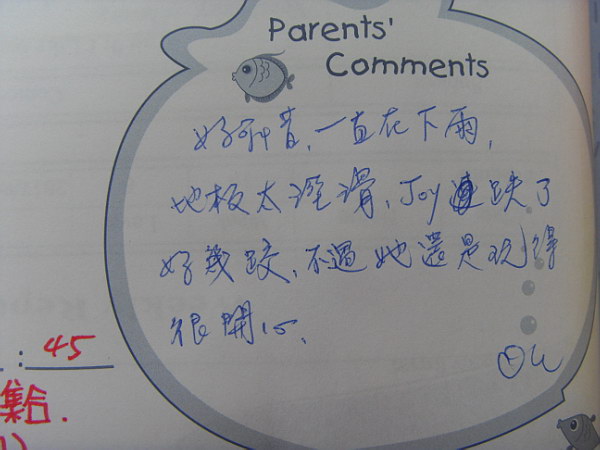 Parents'
Comments
好可惜,一直在下雨,
地板太溼滑,Joy連跌了
好幾跤,不過她還是玩得
很開心、
: 45
集合.